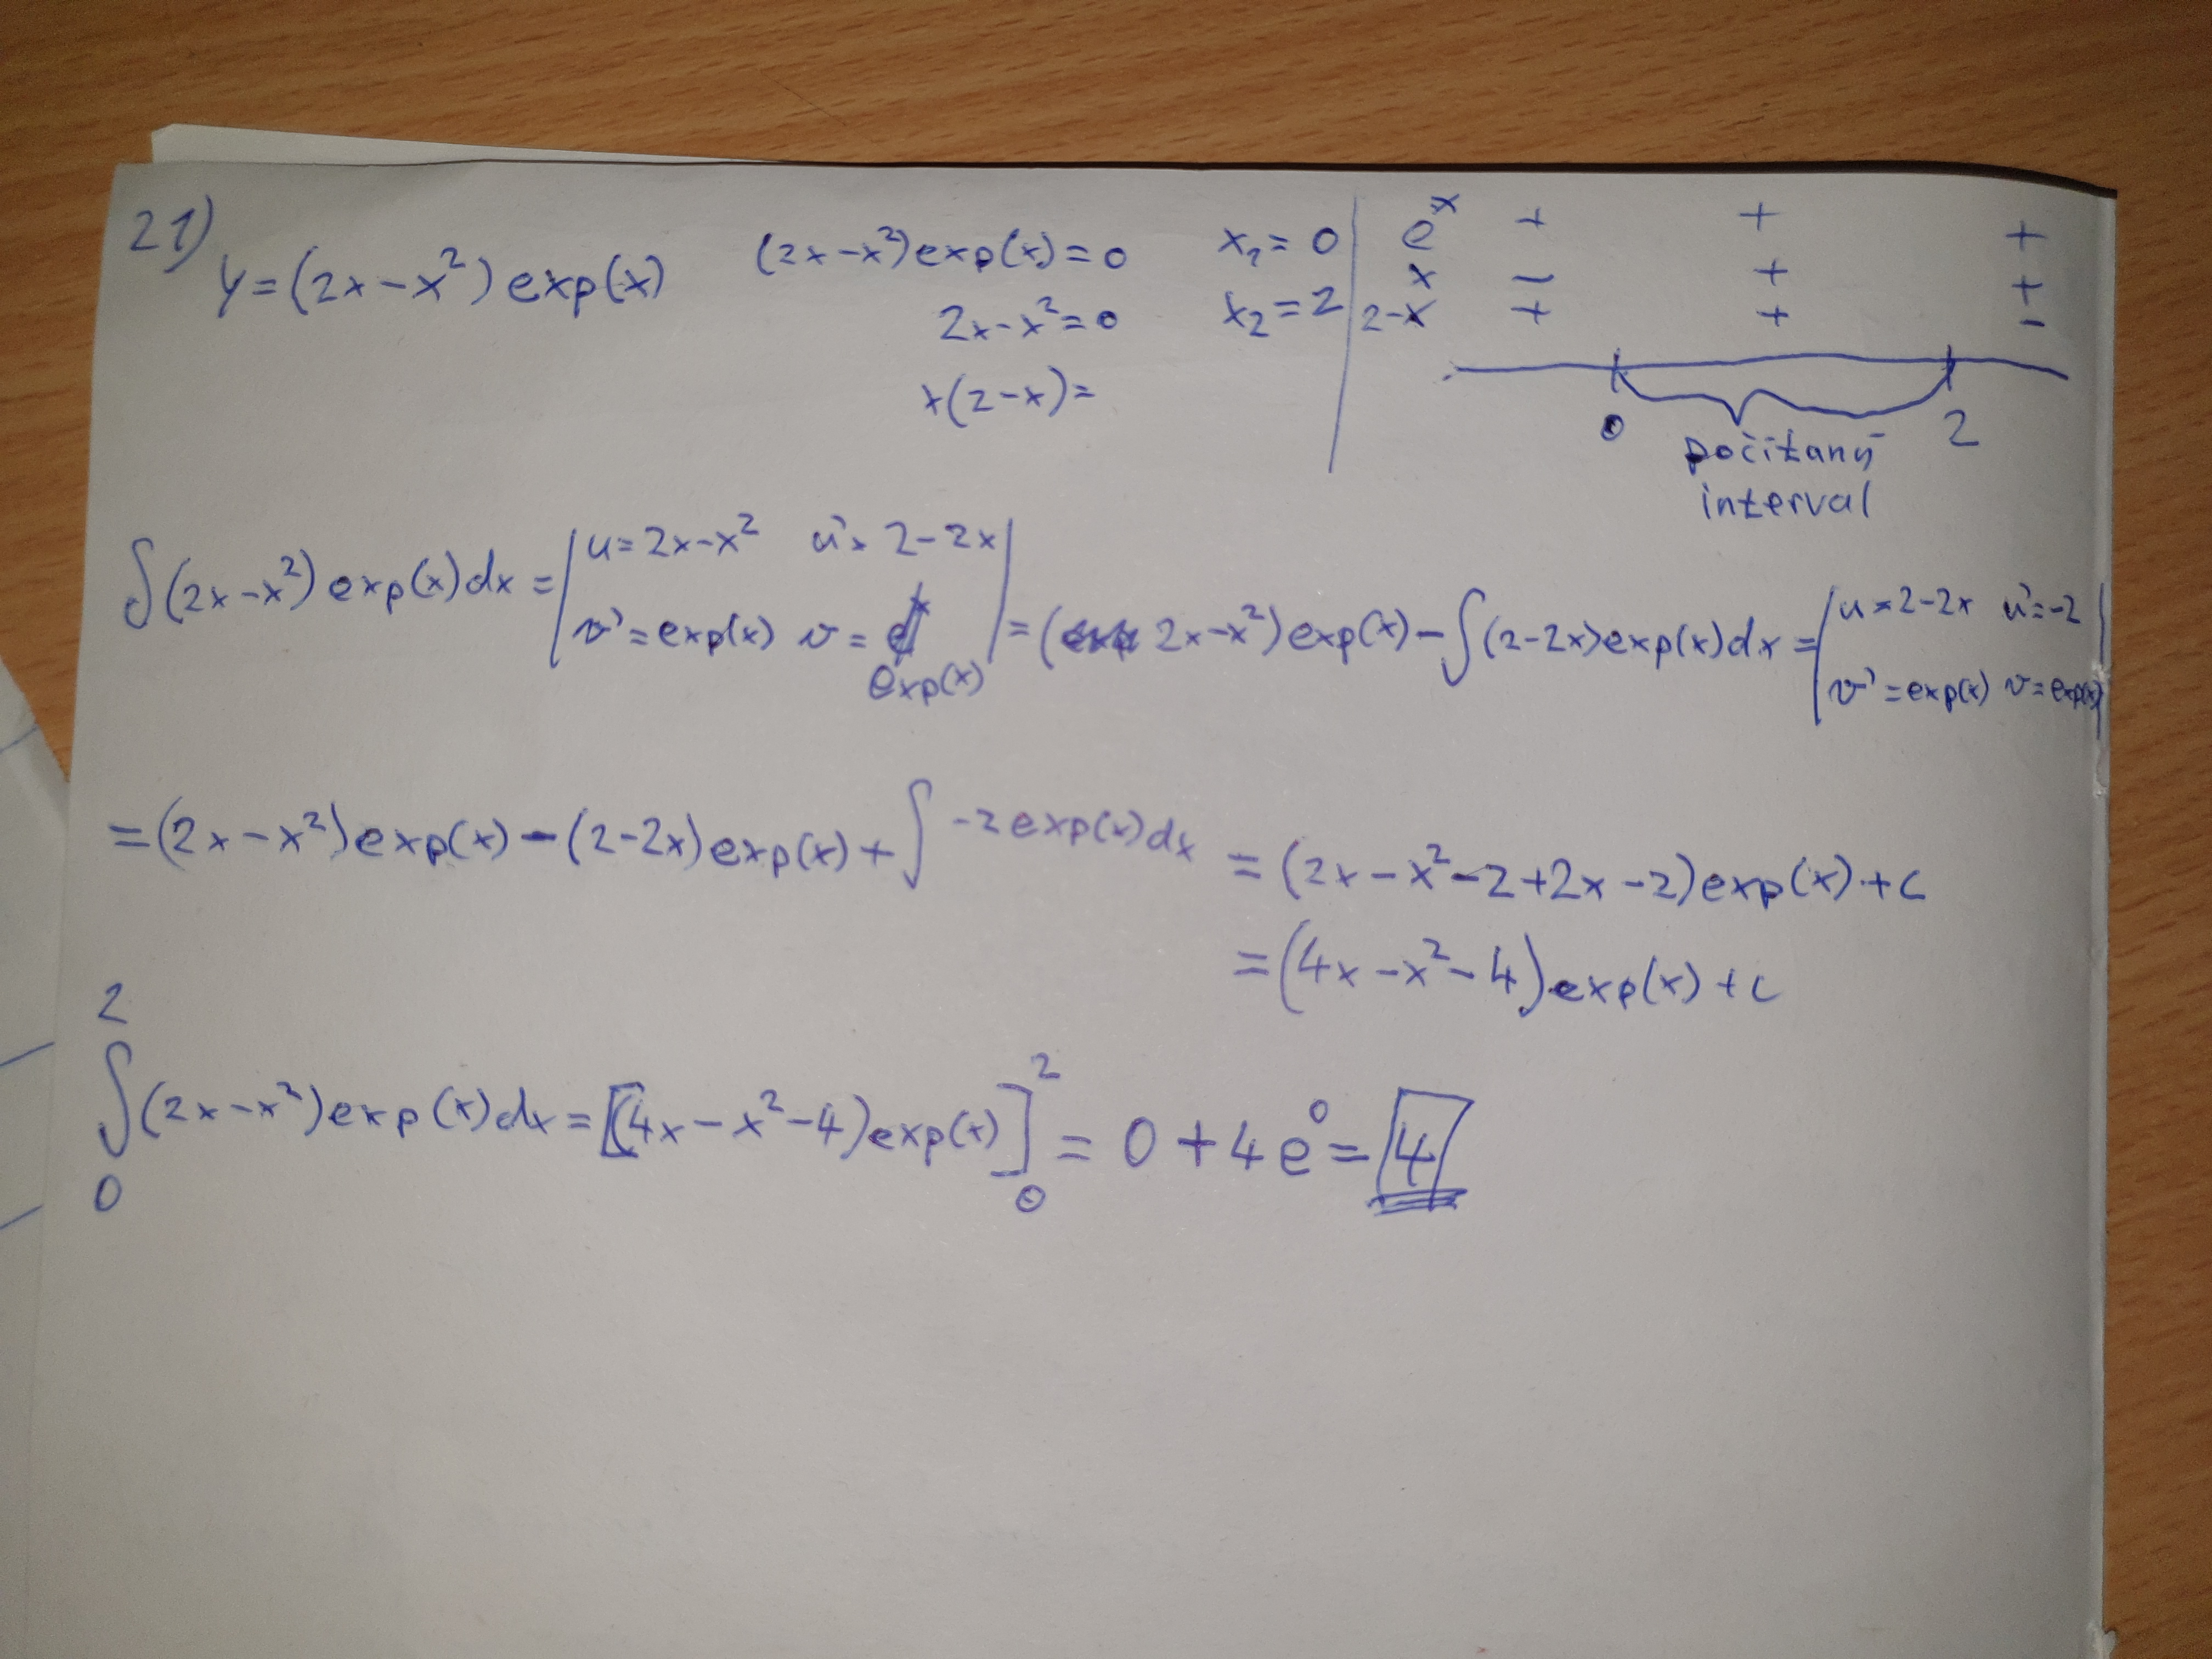 21)
y=(2x-x²)exp(x) (2x-x²)exp(x)=0 x₁=0 eˣ + + +
x - + +
2x-x²=0 x₂=2 2-x + + -
x(2-x)=
0 2
počítaný
interval
∫(2x-x²)exp(x)dx = |u=2x-x² u'=2-2x|
|v'=exp(x) v=exp(x)| =(2x-x²)exp(x)-∫(2-2x)exp(x)dx = |u=2-2x u'=-2|
|v'=exp(x) v=exp(x)|
=(2x-x²)exp(x)-(2-2x)exp(x)+∫-2exp(x)dx =(2x-x²-2+2x-2)exp(x)+c
=(4x-x²-4)exp(x)+c
2
∫(2x-x²)exp(x)dx=[(4x-x²-4)exp(x)]₀² = 0+4e⁰=4
0